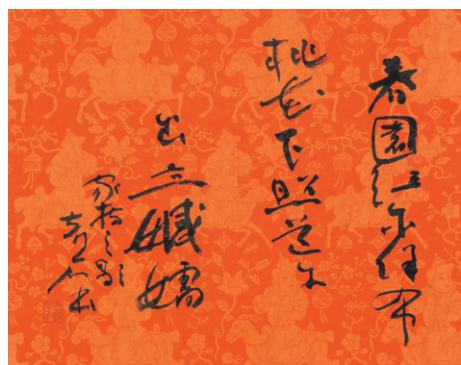 春園紅尓保布
桃花下照道尓
出立𡢳嬬
家持之哥